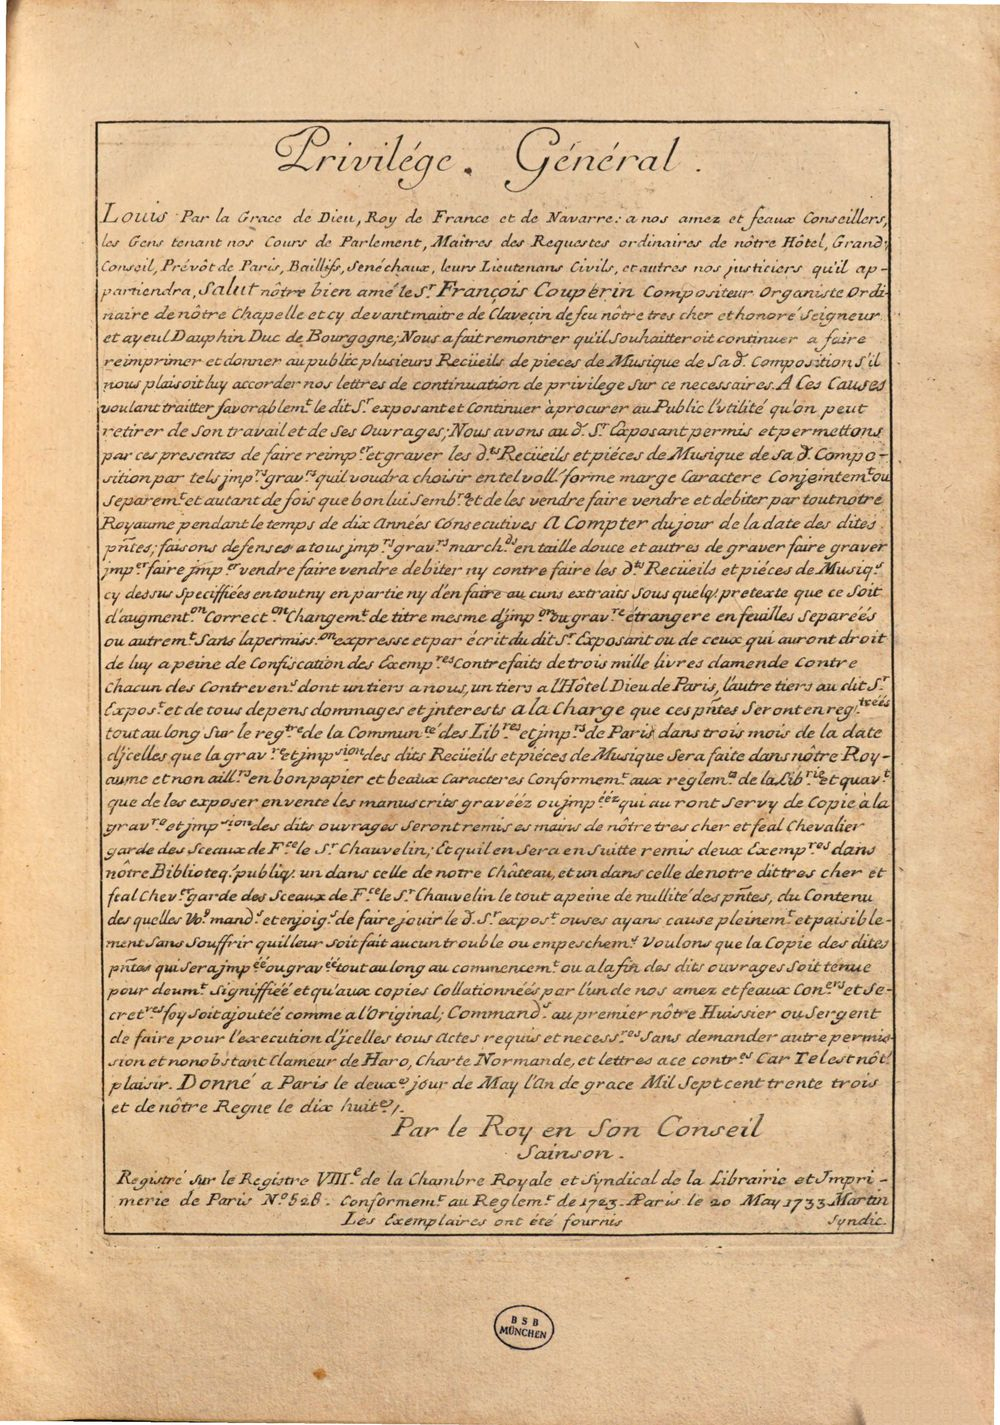 Privilége. Général.
Louis Par la Grace de Dieu, Roy de France et de Navarre: a nos amez et feaux Conseillers,
les Gens tenant nos Cours de Parlement, Maîtres des Requestes ordinaires de nôtre Hôtel, Grand,
Conseil, Prévôt de Paris, Baillifs, Senéchaux, leurs Lieutenans Civils, et autres nos justiciers qu'il ap-
partiendra, Salut nôtre bien amé le Sr. François Coupérin Compositeur Organiste Ordi-
naire de nôtre Chapelle et cy devant maitre de Claveçin de feu nôtre tres cher et honoré Seigneur
et ayeul Dauphin Duc de Bourgogne, Nous a fait remontrer qu'il souhaitteroit continuer a faire
reimprimer et donner au public plusieurs Recüeils de pieces de Musique de Sa d. Composition S'il
nous plaisoit luy accorder nos lettres de continuation de privilege Sur ce necessaires. A Ces Causes
voulant traitter favorablemt. le dit Sr. exposant et Continuer à procurer au Public l'vtilité qu'on peut
retirer de Son travail et de Ses Ouvrages; Nous avons au d. Sr. Exposant permis et permettons
par ces presentes de faire reimp.er et graver les d.ts Recüeils et piéces de Musique de Sa d. Compo-
sition par tels jmp.rs grav.rs quil voudra choisir en tel voll. forme marge Caractere Conjointem.t ou
Separem.t et autant de fois que bon lui Semb.ra et de les vendre faire vendre et debiter par tout nôtre
Royaume pendant le temps de dix Années Consecutives A Compter du jour de la date des dites
pñtes; faisons defenses a tous jmp.rs grav.rs march.ds en taille douce et autres de graver faire graver
jmp.er faire jmp.er vendre faire vendre debiter ny contre faire les d.ts Recüeils et piéces de Musiq.e
cy dessus Speciffiées en tout ny en partie ny d'en faire au cuns extraits Sous quelq. pretexte que ce Soit
d'augment.on Correct.on Changem.t de titre mesme d'jmp.on ou grav.re étrangere en feuilles Separéés
ou autrem.t Sans la permiss.on expresse et par écrit du dit Sr. Exposant ou de ceux qui auront droit
de luy a peine de Confiscation des Exemp.res Contrefaits de trois mille livres damende Contre
Chacun des Contreven.s dont un tiers a nous, un tiers a l'Hôtel Dieu de Paris, l'autre tiers au dit Sr.
Expos.t et de tous depens dommages et jnterests a la Charge que ces pñtes Seront enreg.tréés
tout au long Sur le reg.tre de la Commun.té des Lib.res et jmp.rs de Paris dans trois mois de la date
d'jcelles que la grav.re et jmp.sion des dits Recüeils et piéces de Musique Sera faite dans nôtre Roy-
aume et non aill.rs en bon papier et beaux Caracteres Conformem.t aux reglem.ts de la Lib.rie et quav.t
que de les exposer en vente les manuscrits gravééz ou jmp.ééz qui au ront Servy de Copie à la
grav.re et jmp.sion des dits ouvrages Seront remis es mains de nôtre tres cher et feal Chevalier
garde des Sceaux de F.ce le Sr. Chauvelin; Et quil en Sera en Suitte remis deux Exemp.res dans
nôtre Biblioteq. publiq. un dans celle de notre Château, et un dans celle de notre dit tres cher et
feal Chev.er garde des Sceaux de F.ce le Sr. Chauvelin le tout a peine de nullité des pñtes, du Contenu
des quelles Vo.s mand.s et enjoig.s de faire jouir le d. Sr. expos.t ou ses ayans cause pleinem.t et paisible-
ment Sans Souffrir quil leur Soit fait aucun trouble ou empeschem.t Voulons que la Copie des dites
pñtes qui Sera jmp.éé ou grav.éé tout au long au commencem.t ou a la fin des dits ouvrages Soit tenue
pour deum.t Signiffiéé et qu'aux copies Collationnéés par l'un de nos amez et feaux Con.ers et Se-
cret.res foy soit ajoutéé comme a l'Original; Command.s au premier nôtre Huissier ou Sergent
de faire pour l'execution d'jcelles tous Actes requis et necess.res Sans demander autre permis-
sion et nonobstant Clameur de Haro, Charte Normande, et lettres a ce contr.es Car Tel est nôt.
plaisir. Donné a Paris le deux.e jour de May l'An de grace Mil Sept cent trente trois
et de nôtre Regne le dix huit.e/.
Par le Roy en Son Conseil
Sainson.
Registré Sur le Registre VIII.e de la Chambre Royale et Syndical de la Librairie et Impri-
merie de Paris N.o 528. Conformem.t au Reglem.t de 1723. A Paris le 20 May 1733 Martin
Les Exemplaires ont été fournis Syndic.
BSB
MÜNCHEN